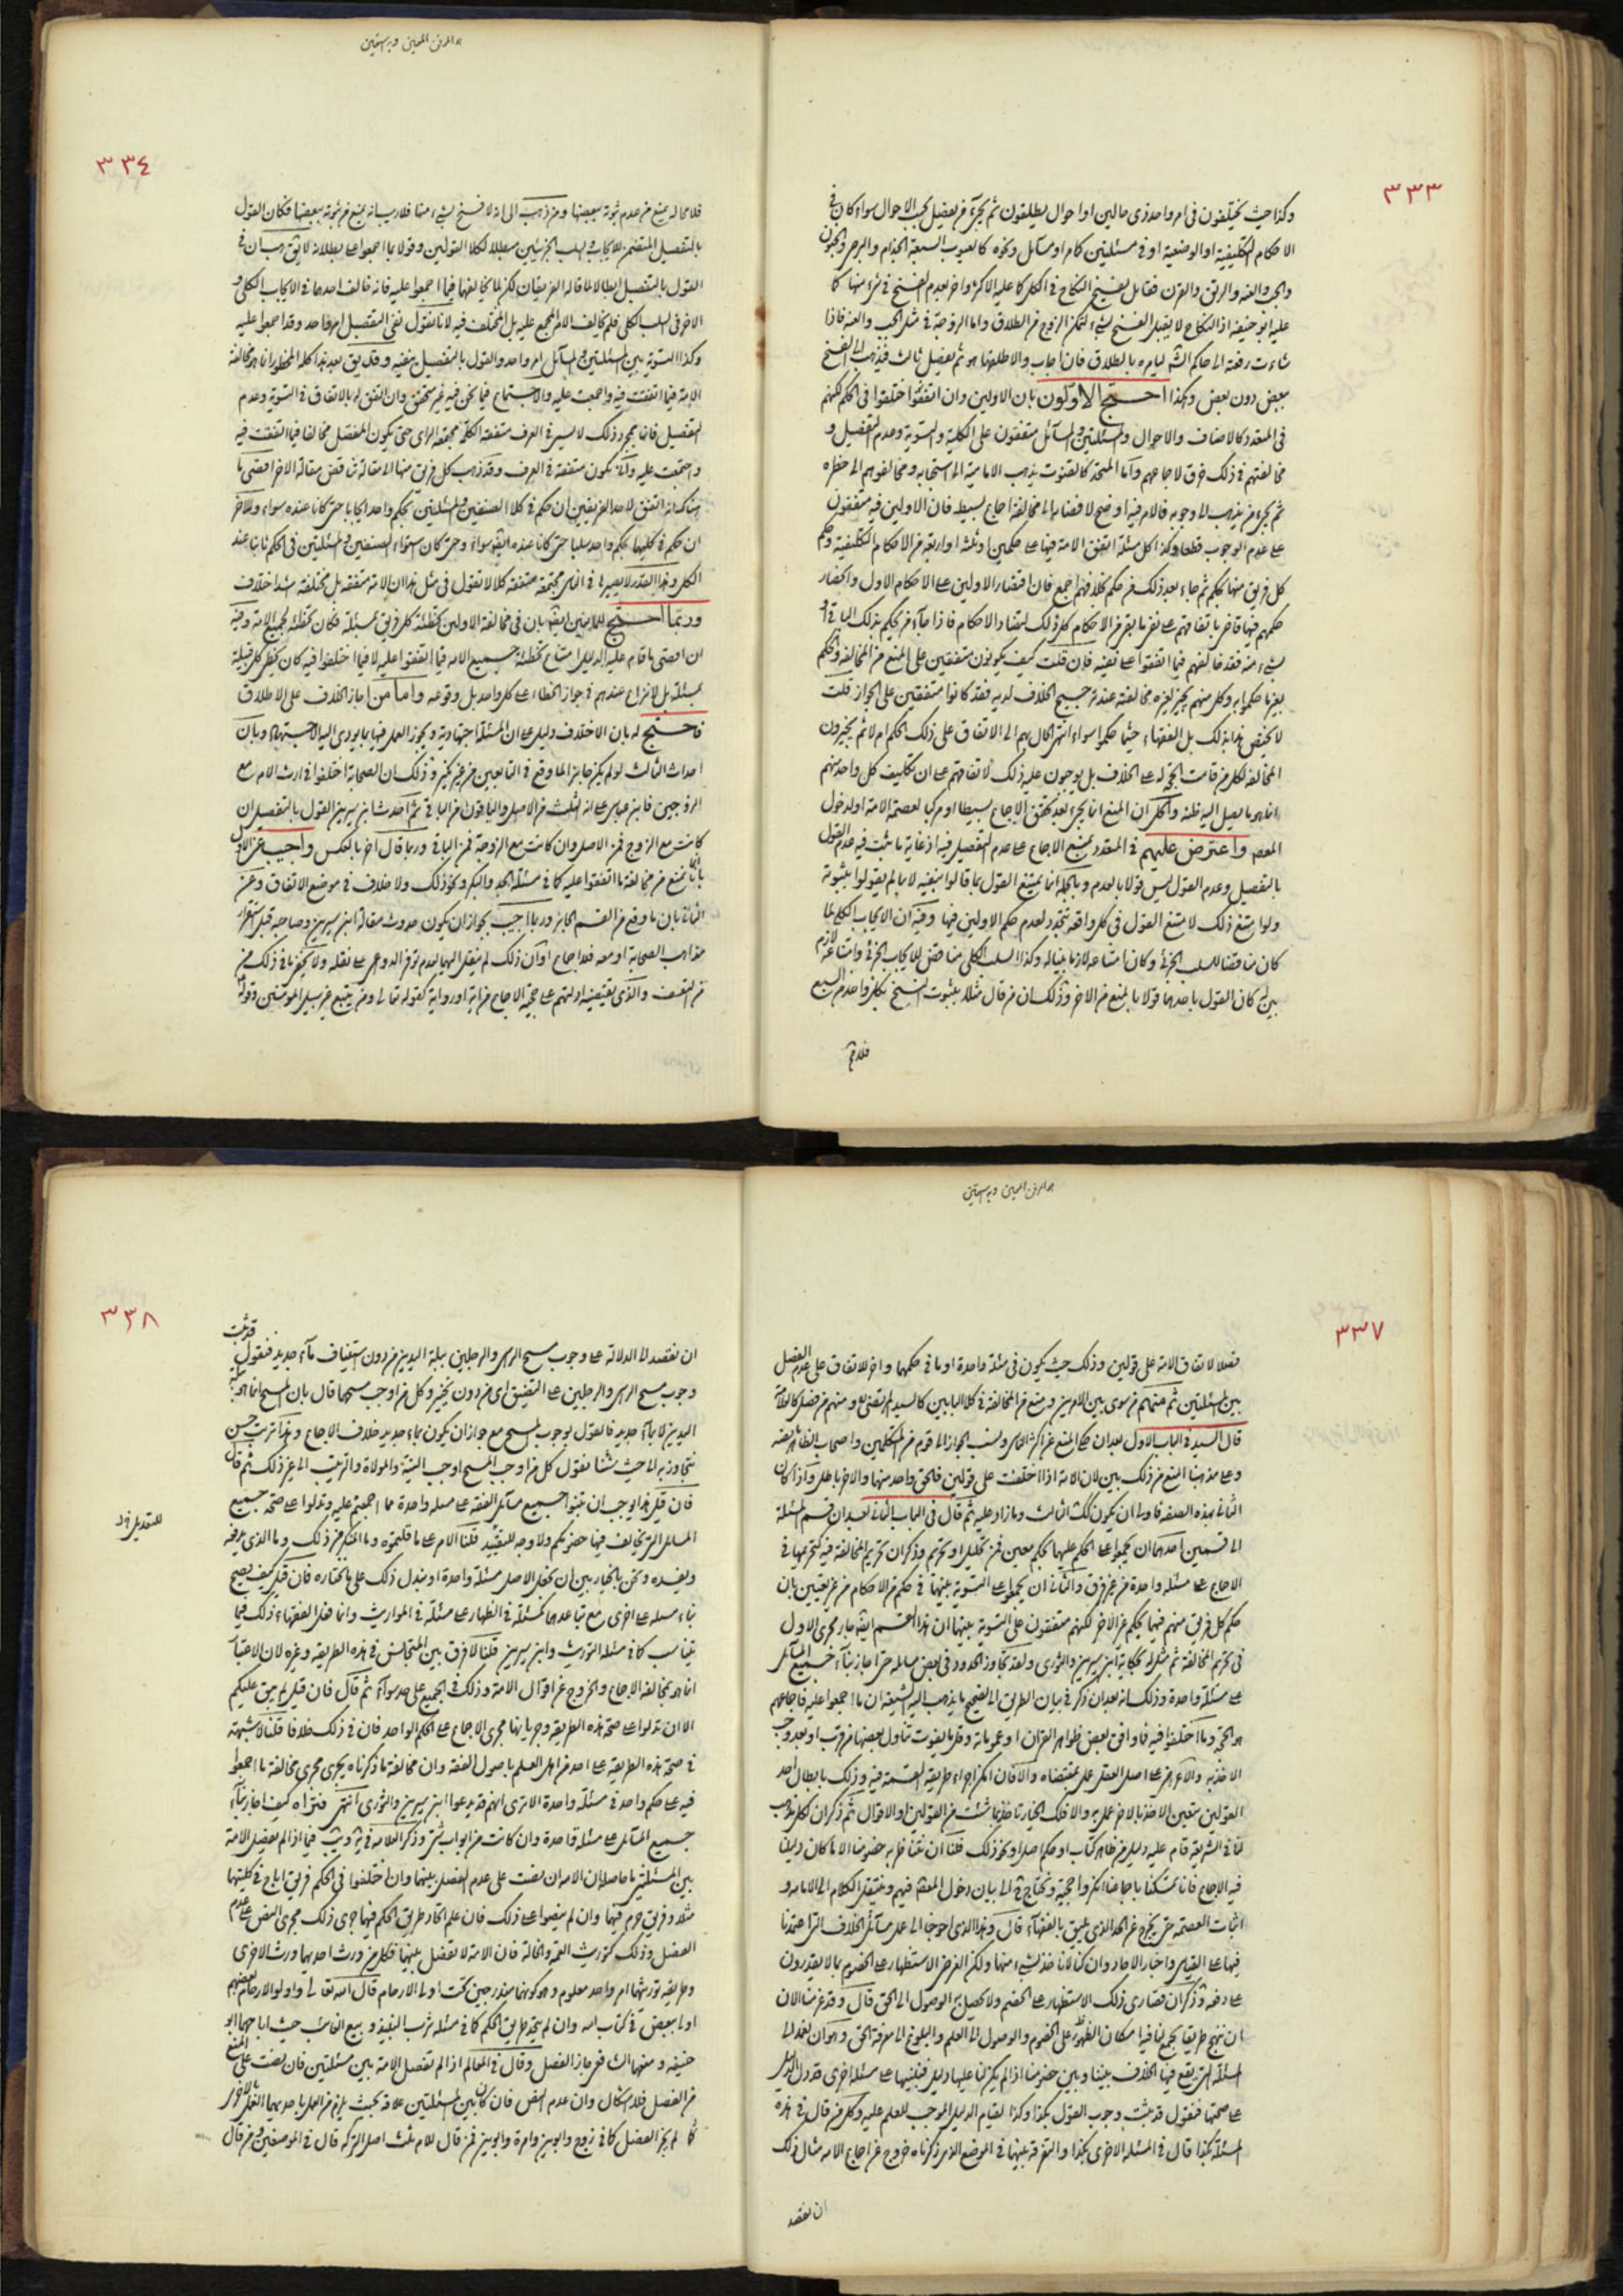 ٣٣٣
وكذا حيث يختلفون فى امر واحد ذى حالين او احوال يطلقون ثم يجىء من يفصل بحسب الاحوال سواء كان فى
الاحكام التكليفية او الوضعية او فى مسئلتين كام او مسائل ونحوه كالعيوب السبعة الجذام والبرص والجنون
والجب والعنه والرتق والقرن فقائل يفسخ النكاح فى الكل كما عليه الاكثر واخر بعدم الفسخ فى شىء منها كما
عليه ابو حنيفة اذ النكاح لا يقبل الفسخ لتمكن الزوج من الطلاق واما الزوجة فى مثل الجب والعنه فاذا
شاءت رفعته الى حاكم الشرع ليامره بالطلاق فان اجاب والا طلقها هو ثم يفصل ثالث فيذهب الى الفسخ
ببعض دون بعض وهكذا احتج الاولون بان الاولين وان اتفقوا اختلفوا فى الحكم لكنهم
فى المتعدد كالاصناف والاحوال والمسئلتين والمسائل متفقون على الكلية والتسوية وعدم التفصيل و
مخالفتهم فى ذلك خرق لاجماعهم واما المتحد كالقنوت يذهب الامامية الى استحبابه ومخالفوهم الى حظره
ثم يجىء من يذهب الى وجوبه فالامر فيه اوضح لافضائه الى مخالفة اجماع بسيط فان الاولين فيه متفقون
على عدم الوجوب قطعا وكذا كل مسئلة اتفق الامة فيها على حكمين او ثلثه او اربعة من الاحكام التكليفية وحكم
كل فريق منها بحكم ثم جاء بعد ذلك من حكم بخلافهم اجمع فان اقتصار الاولين على الاحكام الاول وانحصار
حكمهم فيها قاض باتفاقهم على نفى ما بقى من الاحكام كل ذلك لتضاد الاحكام فاذا جاء من يحكم بذلك الباقى او
شىء منه فقد خالفهم فيما اتفقوا على نفيه فان قلت كيف يكونون متفقين على المنع من المخالفة والحكم
بغير ما حكموا به وكل منهم يجيز لغيره مخالفته عند ترجيح الخلاف لديه فقد كانوا متفقين على الجواز قلت
لا يختص هذا بذلك بل الفقهاء حيثما حكموا سواء انتهى الحال بهم الى الاتفاق على ذلك الحكم ام لا ثم يجيزون
المخالفة لكل من قامت الحجة له على الخلاف بل يوجبون عليه ذلك لاتفاقهم على ان تكليف كل واحد منهم
انما هو ما يصل اليه ظنه والحل ان المنع انما يجىء بعد تحقق الاجماع بسيطا او مركبا لعصمة الامة او لدخول
المعصوم واعترض عليهم فى المتعدد بمنع الاجماع على عدم التفصيل فيه اذ غاية ما ثبت فيه عدم القول
بالتفصيل وعدم القول ليس قولا بالعدم وبالجملة انما يمتنع القول بما قالوا بنفيه لا بما لم يقولوا بثبوته
ولو امتنع ذلك لامتنع القول فى كل واقعة تتجدد لعدم حكم الاولين فيها وفيه ان الايجاب الكلى لما
كان مناقضا للسلب الجزئى وكان امتناعه لازما بينا له وكذا السلب الكلى مناقض للايجاب الجزئى وامتناعه لازم
بين له كان القول باحدهما قولا بالمنع من الاخر وذلك ان من قال مثلا بثبوت الفسخ بكل واحد من السبع
فلا مح
٣٣٤
فلا محالة يمنع من عدم ثبوته ببعضها ومن ذهب الى انه لا فسخ بشىء منها فلا ريب انه يمنع من ثبوته ببعضها فكان القول
بالتفصيل المتضمن للايجاب والسلب الجزئيين مبطلا لكلا القولين وقولا بما اجمعوا على بطلانه لا يقال غاية ما هناك ان فى
القول بالتفصيل ابطالا لما قاله الفريقان لكن لم يخالفهما فيما اجمعوا عليه فانه خالف احدهما فى الايجاب الكلى و
الاخر فى السلب الكلى فلم يخالف الامر المجمع عليه بل المختلف فيه لانا نقول نفى التفصيل امر واحد وقد اجمعوا عليه
وكذا التسوية بين المسئلتين والمسائل امر واحد والقول بالتفصيل ينفيه وقد يقال بعد هذا كله المحظور انما هو مخالفة
الامة فيما اتفقت فيه واجمعت عليه والاجتماع فيما نحن فيه غير متحقق وان اتفق له بالاتفاق فى التسوية وعدم
التفصيل فانما بمجرد ذلك لا يسير فى العرف متفقة الكلمة مجتمعة الراى حتى يكون المفصل مخالفا فيما اتفقت فيه
واجتمعت عليه وانى يكون متفقة فى العرف وقد ذهب كل فريق منها الى مقالة تناقض مقالة الاخر اقصى ما
هناك انه اتفق لاحد الفريقين ان حكم فى كلا الصنفين والمسئلتين بحكم واحد ايجابا حتى كانا عنده سواء وللاخر
ان حكم فى كليهما بحكم واحد سلبا حتى كانا عنده ايضا سواء وحتى كان استواء الصنفين والمسئلتين فى الحكم ثابتا عند
الكل وهذا القدر لا يصيرهما فى الناس مجتمعة متفقة كلا لا تقول فى مثل هذا ان الامة متفقة بل مختلفة اشد اختلاف
وربما احتج للمانعين ايضا بان فى مخالفة الاولين تخطئة كل فريق بمسئلة فكان تخطئة لجميع الامة وفيه
ان اقصى ما قام عليه الدليل امتناع تخطئة جميع الامة فيما اتفقوا عليه لا فيما اختلفوا فيه كان يخطى كل قبيلة
بمسئلة بل لا نزاع عندهم فى جواز الخطاء على كل واحد بل وقوعه واما من اجاز الخلاف على الاطلاق
فاحتج له بان الاختلاف دليل على ان المسئلة اجتهادية ويجوز العمل فيها بما يودى اليه الاجتهاد وبان
احداث الثالث لو لم يكن جائزا لما وقع فى التابعين من غير نكير وذلك ان الصحابة اختلفوا فى ارث الام مع
الزوجين فابن عباس على انه الثلث من الاصل والباقون من الباقى ثم احدث ابن سيرين القول بالتفصيل ان
كانت مع الزوج فمن الاصل وان كانت مع الزوجة فمن الباقى وربما قال اخر بالعكس واجيب عن الاول
بانما نمنع من مخالفة ما اتفقوا عليه كما فى مسئلة الجد والبكر ونحو ذلك ولا خلاف فى موضع الاتفاق وعن
الثانى بان ما وقع من القسم الجائز وربما اجيب بجواز ان يكون حدوث مقالة ابن سيرين وصاحبه قبل استقرار
مذاهب الصحابة او معه فلا اجماع او ان ذلك لم ينقل الينا لعدم توفر الدواعى على نقله ولا يخفى ما فى ذلك من
من التعسف والذى يقتضيه ادلتهم على حجية الاجماع من اية او رواية كقوله تعالى ومن يتبع غير سبيل المومنين وقوله
٣٣٧
مفصلا لاتفاق الامة على قولين وذلك حيث يكون فى مسئلة واحدة او ما فى حكمها واخر لاتفاق على عدم الفصل
بين المسئلتين ثم منهم من سوى بين الامرين ومنع من المخالفة فى كلا البابين كالسيد المرتضى ومنهم من فصل كالعلامة
قال السيد فى الباب الاول بعد ان حكى المنع عن اكثر الناس ونسب الجواز الى قوم من المتكلمين واصحاب الظاهر بعضه
وعلى مذهبنا المنع من ذلك بين لان الامة اذا اختلفت على قولين فالحق واحد منهما والاخر باطل واذا كان
الثانى بهذه الصفة فاولى ان يكون كك الثالث وما زاد عليه ثم قال فى الباب الثانى بعد ان قسم المسئلة
الى قسمين احدهما ان يجمعوا على الحكم عليها بحكم معين من تحليل او تحريم وذكر ان تحريم المخالفة فيه كتحريمها فى
الاجماع على مسئلة واحدة من غير فرق والثانى ان يجمعوا على التسوية بينهما فى حكم من الاحكام من غير تعيين بان
حكم كل فريق منهم فيهما بحكم غير الاخر لكنهم متفقون على التسوية بينهما ان هذا القسم ايضا جار مجرى الاول
فى تحريم المخالفة ثم مثل له بحكاية ابن سيرين والثورى ولقد تجاوز الحدود فى بعض مسائله حتى اجاز بناء جميع المسائل
على مسئلة واحدة وذلك انه بعد ان ذكر فى بيان الطريق الى تصحيح ما يذهب اليه الشيعة ان ما اجمعوا عليه فاجماعهم
هو الحجة وما اختلفوا فيه فما وافق بعض ظواهر القران او عمومات وقل ما يفوت تناول بعضها من قرب او بعد وجب
الاخذ به والا اخر على اصل العقل عمل بمقتضاه والا فان امكن اجراء طريقة القسمة فيه وذلك بابطال احد
القولين يتعين الاخذ بالاخر عمل به والا فلك الخيار تاخذ بما شئت من القولين او الاقوال ثم ذكر ان لكل مذهب
لنا فى الشريعة قام عليه دليل من ظاهر كتاب او حكم اصل او نحو ذلك فلنا ان نناظر به خصومنا الا ما كان دليلنا
فيه الاجماع فانا تمسكنا باجماعنا انكروا حجيته ونحتاج ح الى بيان دخول المعصوم فيهم وينتقل الكلام الى الامامة و
اثبات العصمة حتى يخرج عن الحد الذى يليق بالفقهاء قال وهذا الذى احوجنا الى عمل مسائل الخلاف التى اعتمدنا
فيها على القياس واخبار الاحاد وان كنا لا ناخذ بشىء منها ولكن الغرض الاستظهار على الخصوم بما لا يقدرون
على دفعه وذكر ان قصارى ذلك الاستظهار على الخصم ولا يحصل به الوصول الى الحق قال وقد عزمنا الان
ان ننهج طريقا يجمع لنا فيه امكان الظفر على الخصوم والوصول الى العلم والبلوغ الى معرفة الحق وهو ان نعمد الى
المسئلة التى يقع فيها الخلاف بيننا وبين خصومنا اذا لم يكن لنا عليها دليل فنبنيها على مسئلة اخرى قد دل الدليل
على صحتها فنقول قد ثبت وجوب القول بكذا وكذا لقيام الدليل الموجب للعلم عليه وكل من قال فى هذه
المسئلة بكذا قال فى المسئلة الاخرى بكذا والتفرقة بينهما فى الموضع الذى ذكرناه خروج عن اجماع الامة مثال ذلك
ان نقصد
٣٣٨
ان نقصد الى الدلالة على وجوب مسح الراس والرجلين ببلة اليدين من دون استيناف ماء جديد فنقول قد ثبت
وجوب مسح الراس والرجلين على التضيق اى من دون تخيير وكل من اوجب مسحهما قال بان المسح انما هو ببلة
اليدين لا بماء جديد فالقول بوجوب المسح مع جواز ان يكون بماء جديد خلاف الاجماع وهذا ترتيب حسن
نتجاوز به الى حيث شئنا نقول كل من اوجب المسح اوجب النية والموالاة والترتيب الى غير ذلك ثم قال
فان قيل هذا يوجب ان تبنوا جميع مسائل الفقه على مسئلة واحدة مما اجمعتم عليه وتدلوا على صحة جميع
المسائل التى يخالف فيها خصومكم ولا وجه للتقييد قلنا الامر على ما قلتموه وما المنكر من ذلك وما الذى يدفعه
ويفسده ونحن بالخيار بين ان نجعل الاصل مسئلة واحدة او نبدل ذلك على ما نختاره فان قيل كيف يصح
بناء مسئلة على اخرى مع تباعدهما كمسئلة فى الظهار على مسئلة فى المواريث وانما فعل الفقهاء ذلك فيما
يتناسب كما فى مسئلة الثورى وابن سيرين قلنا لا فرق بين المتجانس فى هذه الطريقة وغيره لان الاعتبار
انما هو بمخالفة الاجماع والخروج عن اقوال الامة وذلك فى الجميع على حد سواء ثم قال فان قيل لم يبق عليكم
الا ان تدلوا على صحة هذه الطريقة وجريانها مجرى الاجماع على الحكم الواحد فان فى ذلك خلافا قلنا لا شبهة
فى صحة هذه الطريقة على احد من اهل العلم باصول الفقه وان مخالفة ما ذكرناه يجرى مجرى مخالفة ما اجمعوا
فيه على حكم واحد فى مسئلة واحدة الا ترى انهم قد بدعوا ابن سيرين والثورى انتهى فتراه كيف اجاز بناء
جميع المسائل على مسئلة واحدة وان كانت من ابواب شتى وذكر العلامة فى يه و يب فيما اذا لم يفصل الامة
بين المسئلتين ما حاصله ان الامة ان نصت على عدم الفصل بينهما وان اختلفوا فى الحكم فريق اباح فى كلتيهما
مثلا وفريق حرم فيهما وان لم ينصوا على ذلك فان علم اتحاد طريق الحكم فيهما جرى ذلك مجرى النص على عدم
الفصل وذلك كتوريث العمة والخالة فان الامة لا تفصل بينهما فكل من ورث احديهما ورث الاخرى
وطريقة توريثهما امر واحد معلوم وهو كونهما مندرجين تحت اولى الارحام قال الله تعالى واولوا الارحام بعضهم
اولى ببعض فى كتاب الله وان لم يتحد طريق الحكم كما فى مسئلة شرب النبيذ وبيع الغائب حيث اباحهما ابو
حنيفة ومنعهما الشافعى جاز الفصل وقال فى المعالم اذا لم تفصل الامة بين مسئلتين فان نصت على المنع
من الفصل فلا اشكال وان عدم النص فان كان بين المسئلتين علاقة بحيث يلزم من العمل باحديهما العمل بالاخرى
لم يجز الفصل كما فى زوج وابوين وامرءة وابوين فمن قال للام ثلث اصل التركة قال فى الموضعين ومن قال